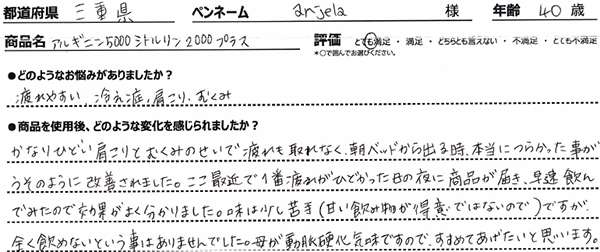 都道府県 三重県 ペンネーム anjela 様 年齢 40 歳
商品名 アルギニン5000シトルリン2000プラス 評価 とても満足・満足・どちらとも言えない・不満足・とても不満足
*○で囲んでお選びください。
●どのようなお悩みがありましたか？
疲れやすい、冷え症、肩こり、むくみ
●商品を使用後、どのような変化を感じられましたか？
かなりひどい肩こりとむくみのせいで疲れも取れなく、朝ベッドから出る時、本当につらかった事が
うそのように改善されました。ここ最近で1番疲れがひどかった日の夜に商品が届き、早速飲ん
でみたので効果がよく分かりました。味は少し苦手（甘い飲み物が得意ではないので）ですが、
全く飲めないという事はありませんでした。母が動脈硬化気味ですので、すすめてあげたいと思います。